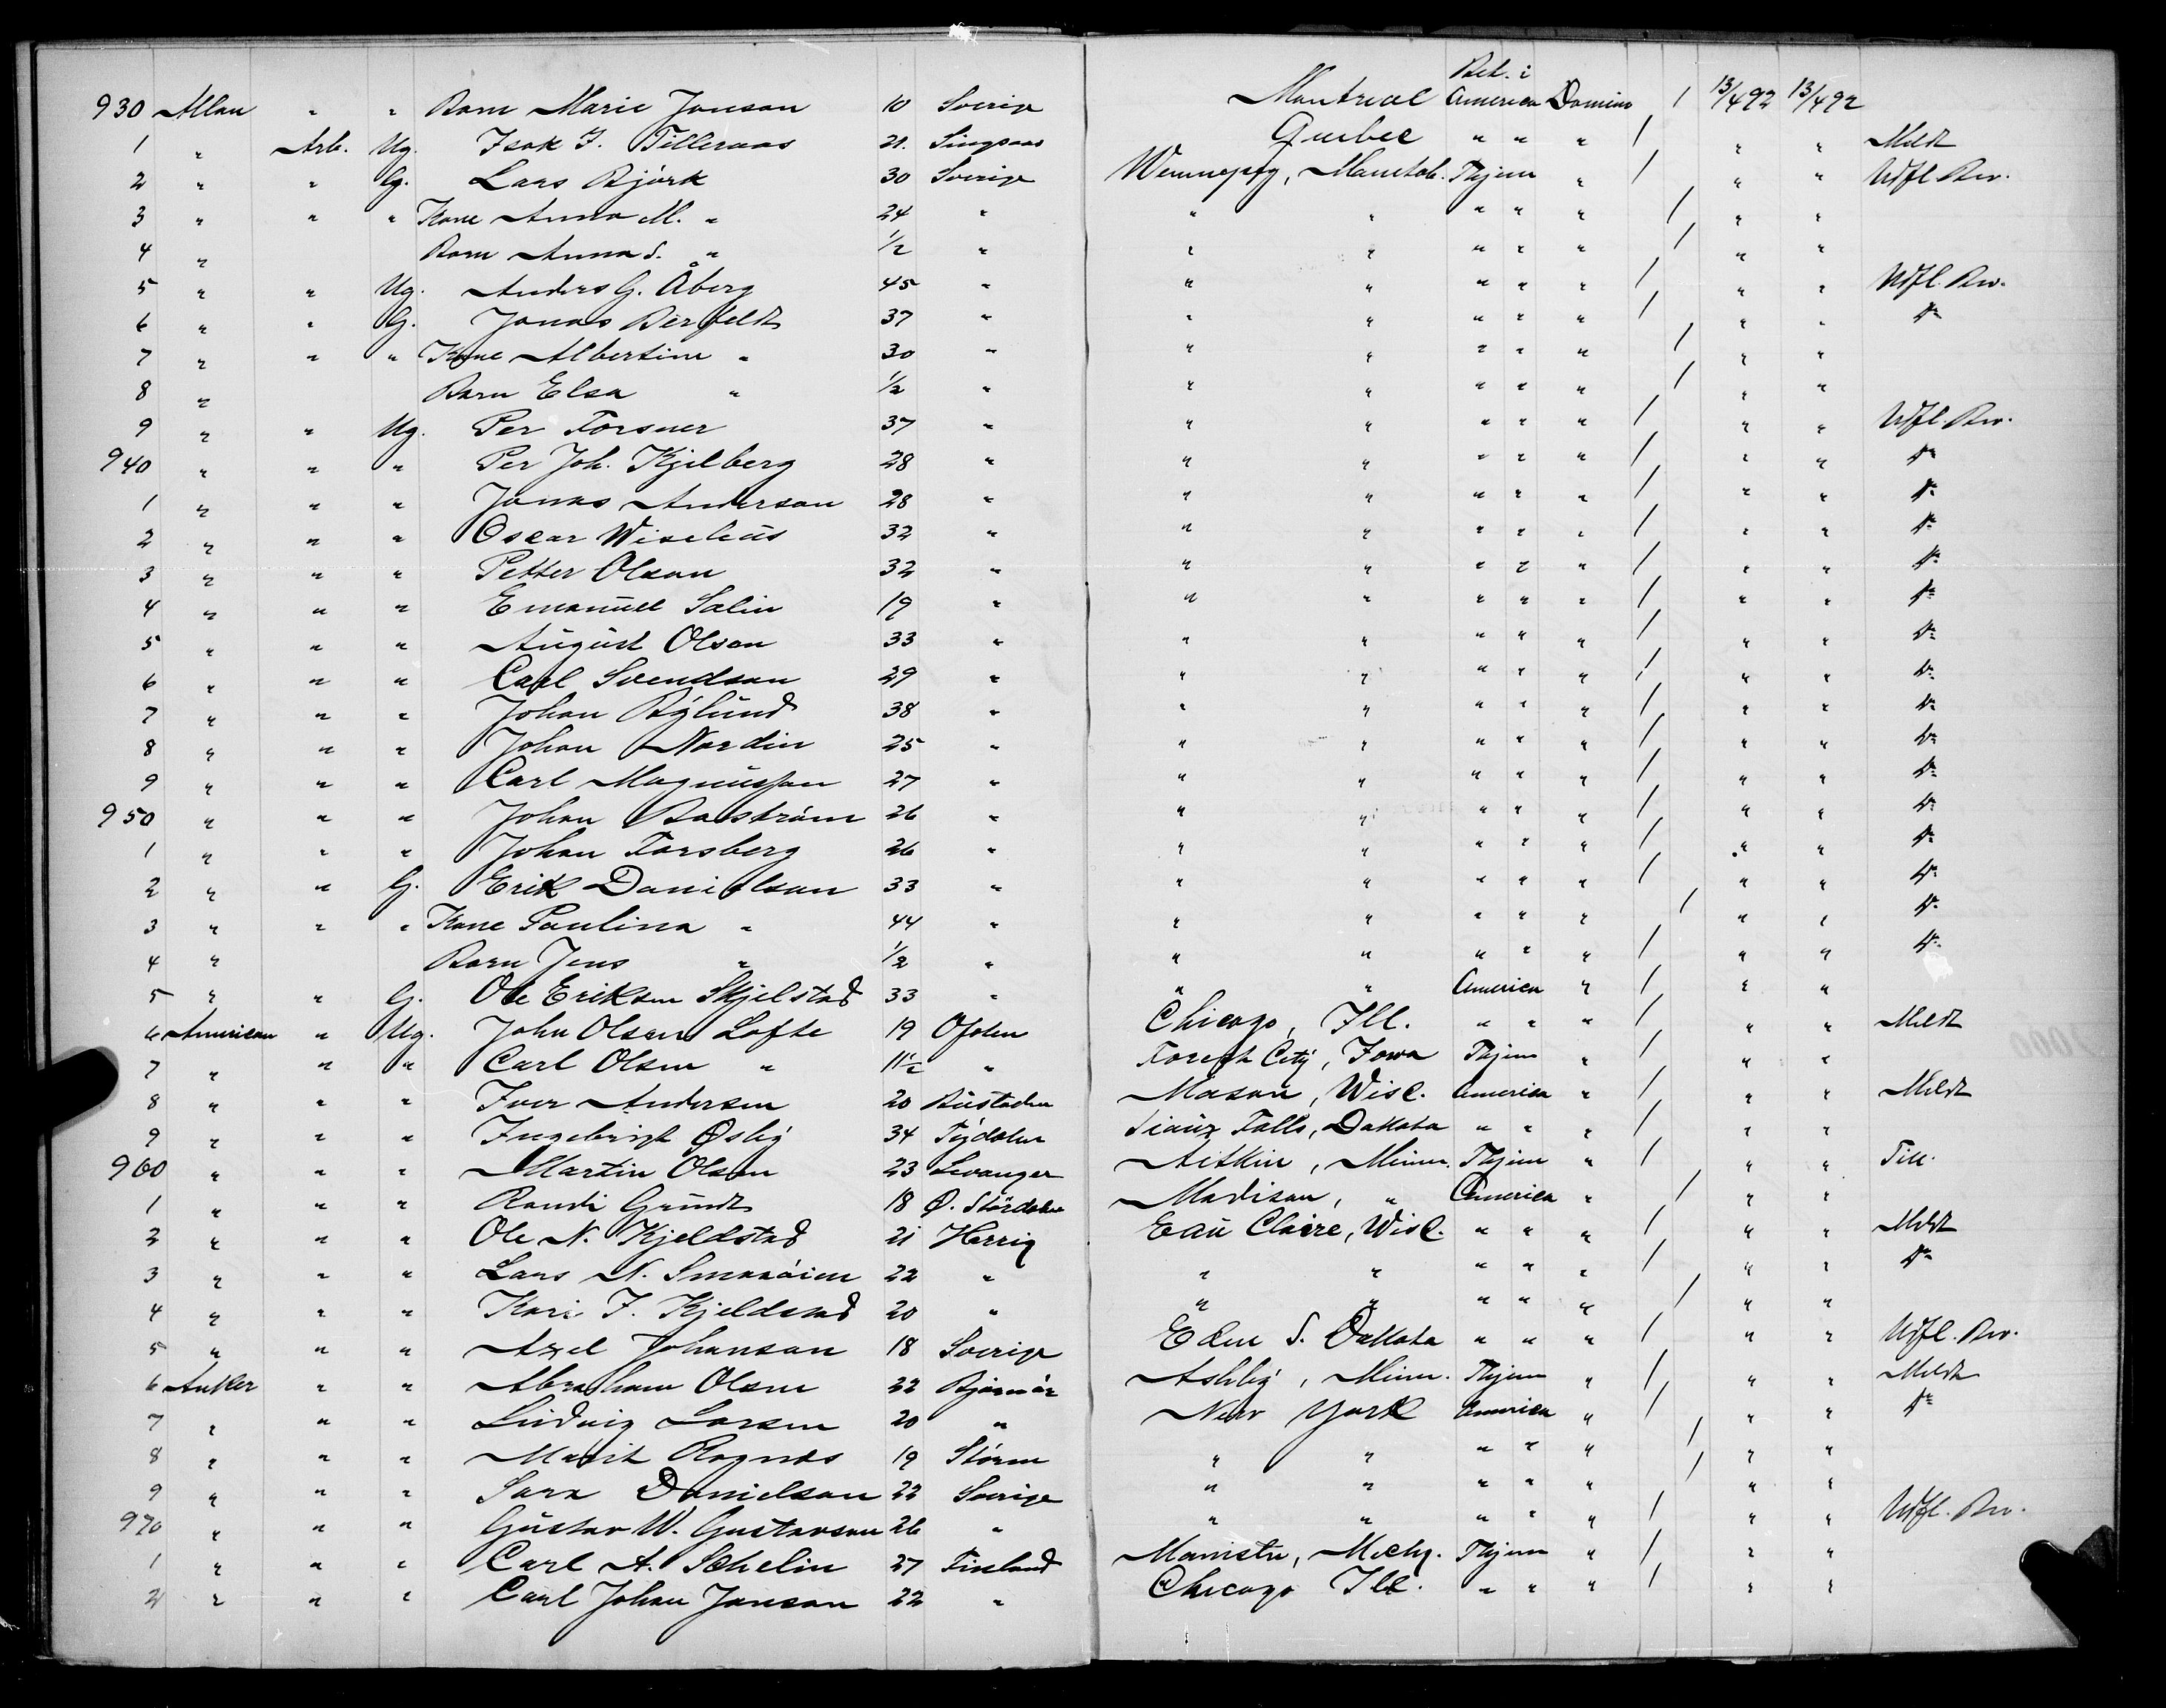 Bet. i
930 Allan " " Barn Marie Jonson 10 Sverige Montreal America Domino 1 13/4 92 13/4 92
1 " Arb. Ug. Isak J. Tilleraas 21. Singsaas Quebec " " " 1 " " Meldt
2 " " G. Lars Björk 30 Sverige Winnepeg, Manitob. Thjem " 1 " " Udfl. Bev.
3 " " " Kone Anna M. " 24 " " " " " " 1 " "
4 " Barn Anna S. " 1/2 " " " " " " 1 " "
5 " " Ug. Anders G. Åberg 45 " " " " " " 1 " " Udfl. Bev.
6 " " G. Jonas Berfeldt 37 " " " " " " 1 " " do
7 " " " Kone Albertine " 30 " " " " " " 1 " "
8 " Barn Elsa " 1/2 " " " " " " 1 " "
9 " " Ug. Per Forsner 37 " " " " " " 1 " " Udfl. Bev.
940 " " " Per Joh. Kjelberg 28 " " " " " " 1 " " do
1 " " " Jonas Anderson 28 " " " " " " 1 " " do
2 " " " Oscar Wiselius 32 " " " " " " 1 " " do
3 " " " Petter Olson 32 " " " " " " 1 " " do
4 " " " Emanuel Salin 19 " " " " " " 1 " " do
5 " " " August Olson 33 " " " " " " 1 " " do
6 " " " Carl Svendson 29 " " " " " " 1 " " do
7 " " " Johan Bylund 38 " " " " " " 1 " " do
8 " " " Johan Nordin 25 " " " " " " 1 " " do
9 " " " Carl Magnusson 27 " " " " " " 1 " " do
950 " " " Johan Boström 26 " " " " " " 1 " " do
1 " " " Johan Forsberg 26 " " " " " " 1 " " do
2 " " G. Erik Danielson 33 " " " " " " 1 " " do
3 " " " Kone Paulina " 44 " " " " " " 1 " " do
4 " Barn Jens " 1/2 " " " " " " 1 " " do
5 " " G. Ole Eriksen Skjelstad 33 " " " America " 1 " "
6 American " Ug. John Olsen Lofte 19 Ofoten Chicago, Ill. " " " 1 " " Meldt
7 " " " Carl Olsen " 11 1/2 " Forest City, Iowa Thjem " 1 " "
8 " " " Iver Andersen 20 Budstaden Mason, Wisc. America " 1 " " Meldt
9 " " " Ingebrigt Øsby 34 Tydalen Sioux Falls, Dakota " " " 1 " "
960 " " " Martin Olsen 23 Levanger Aitkin, Minn. Thjem " 1 " " Till.
1 " " " Randi Grundt 18 Ø. Stördalen Madison, " America " 1 " "
2 " " " Ole N. Kjeldstad 21 Herrig Eau Claire, Wisc. " " " 1 " " Meldt
3 " " " Lars N. 22 " " " " " " 1 " " do
4 " " " Kari J. Kjeldstad 20 " " " " " " 1 " "
5 " " " Axel Johanson 18 Sverige Eden S. Dakota " " " 1 " " Udfl. Bev.
6 Anker " " Abraham Olsen 22 Bjørnør Ashby, Minn. Thjem " 1 " " Meldt
7 " " " Ludvig Larsen 20 " New York America " 1 " " do
8 " " " Marit Rognes 19 Støren " " " " " 1 " "
9 " " " Sara Danielson 22 Sverige " " " " " 1 " "
970 " " " Gustav W. Gustavson 26 " " " " " " 1 " " Udfl. Bev.
1 " " " Carl A. Schelin 27 Finland Manistee, Mich. Thjem " 1 " "
2 " " " Carl Johan Janson 22 " Chicago Ill. " " " 1 " "